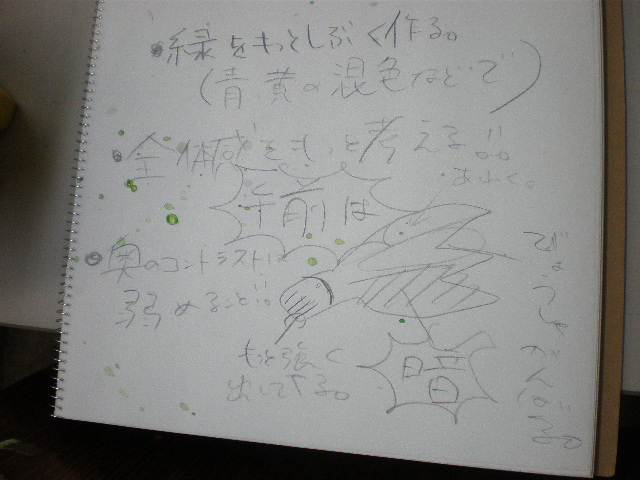 緑をもっとしぶく作る。
(青、黄の混色などで)
全体感をもっと考える!!
手前は
あかく。
奥のコントラストは
弱めること!!
もっと強く
出してやる。
暗